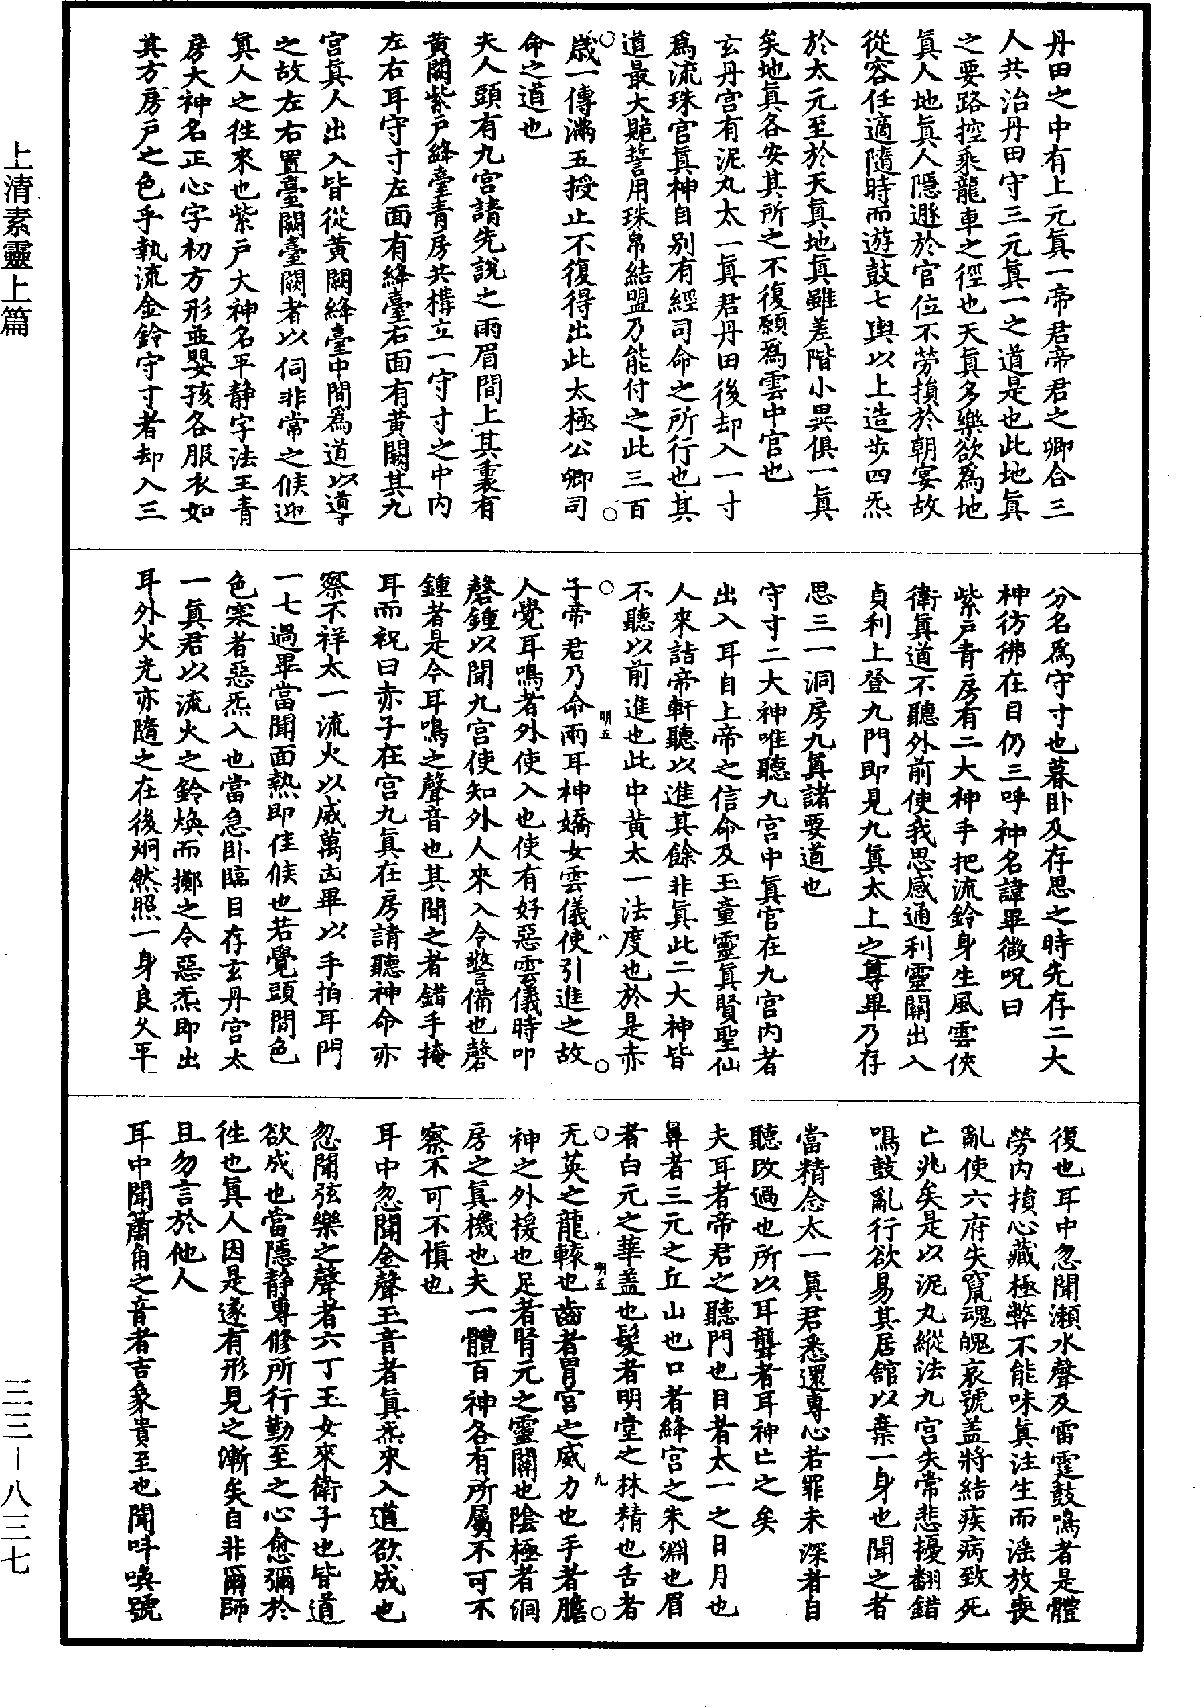 上清素靈上篇
三三—八三七
丹田之中有上元真一帝君帝君之卿合三
人共治丹田守三元真一之道是也此地真
之要路控乘龍車之徑也天真多樂欲爲地
真人地真人隱遯於官位不勞損於朝宴故
從容任適隨時而遊鼓七輿以上造步四炁
於太元至於天真地真雖差階小異俱一真
矣地真各安其所之不復願爲雲中官也
玄丹宮有泥丸太一真君丹田後却入一寸
爲流珠宮真神自別有經司命之所行也其
道最大賧誓用珠帛結盟乃能付之此三百
歲一傳滿五授止不復得出此太極公卿司
命之道也
夫人頭有九宮請先說之兩眉間上其裏有
黃闕紫戶絳臺青房共構立一守寸之中內
左右耳守寸左面有絳臺右面有黃闕其九
宮真人出入皆從黃闕絳臺中間爲道以導
之故左右置臺闕臺闕者以伺非常之候迎
真人之徃來也紫戶大神名平靜字法王青
房大神名正心字初方形並嬰孩各服衣如
其方房戶之色手執流金鈴守寸者却入三
分名爲守寸也暮臥及存思之時先存二大
神彷彿在目仍三呼神名諱畢微呪曰
紫戶青房有二大神手把流鈴身生風雲俠
衛真道不聽外前使我思感通利靈關出入
貞利上登九門即見九真太上之尊畢乃存
思三一洞房九真諸要道也
守寸二大神唯聽九宮中真官在九宮內者
出入耳自上帝之信命及玉童靈真賢聖仙
人來詣帝軒聽以進其餘非真此二大神皆
不聽以前進也此中黃太一法度也於是赤
子帝君乃命兩耳神嬌女雲儀使引進之故
人覺耳鳴者外使入也使有好惡雲儀時叩
磬鍾以聞九宮使知外人來入令警備也磬
鍾者是今耳鳴之聲音也其聞之者錯手掩
耳而祝曰赤子在宮九真在房請聽神命亦
察不祥太一流火以威萬凶畢以手拍耳門
一七過畢當聞面熱即佳候也若覺頭間色
色寒者惡炁入也當急臥臨目存玄丹宮太
一真君以流火之鈴煥而擲之令惡炁即出
耳外火光亦隨之在後炯然照一身良久平
復也耳中忽聞瀨水聲及雷霆鼓鳴者是體
勞內損心藏極弊不能味真注生而滛放喪
亂使六府失窺魂魄哀號盖將結疾病致死
亡兆矣是以泥丸縱法九宮失常悲擾翻錯
鳴鼓亂行欲易其居舘以棄一身也聞之者
當精念太一真君悉還專心若罪未深者自
聽改過也所以耳聾者耳神亡之矣
夫耳者帝君之聽門也目者太一之日月也
鼻者三元之丘山也口者絳宮之朱淵也眉
者白元之華盖也髮者明堂之林精也舌者
无英之龍轅也齒者胃宮之威力也手者膽
神之外援也足者腎元之靈關也陰極者洞
房之真機也夫一體百神各有所屬不可不
察不可不慎也
耳中忽聞金聲玉音者真炁來入道欲成也
忽聞弦樂之聲者六丁玉女來衛子也皆道
欲成也當隱靜專修所行勤至之心愈彌於
徃也真人因是遂有形見之漸矣自非爾師
且勿言於他人
耳中聞簫角之音者吉象貴至也聞呌喚號
明五
八
明五
九